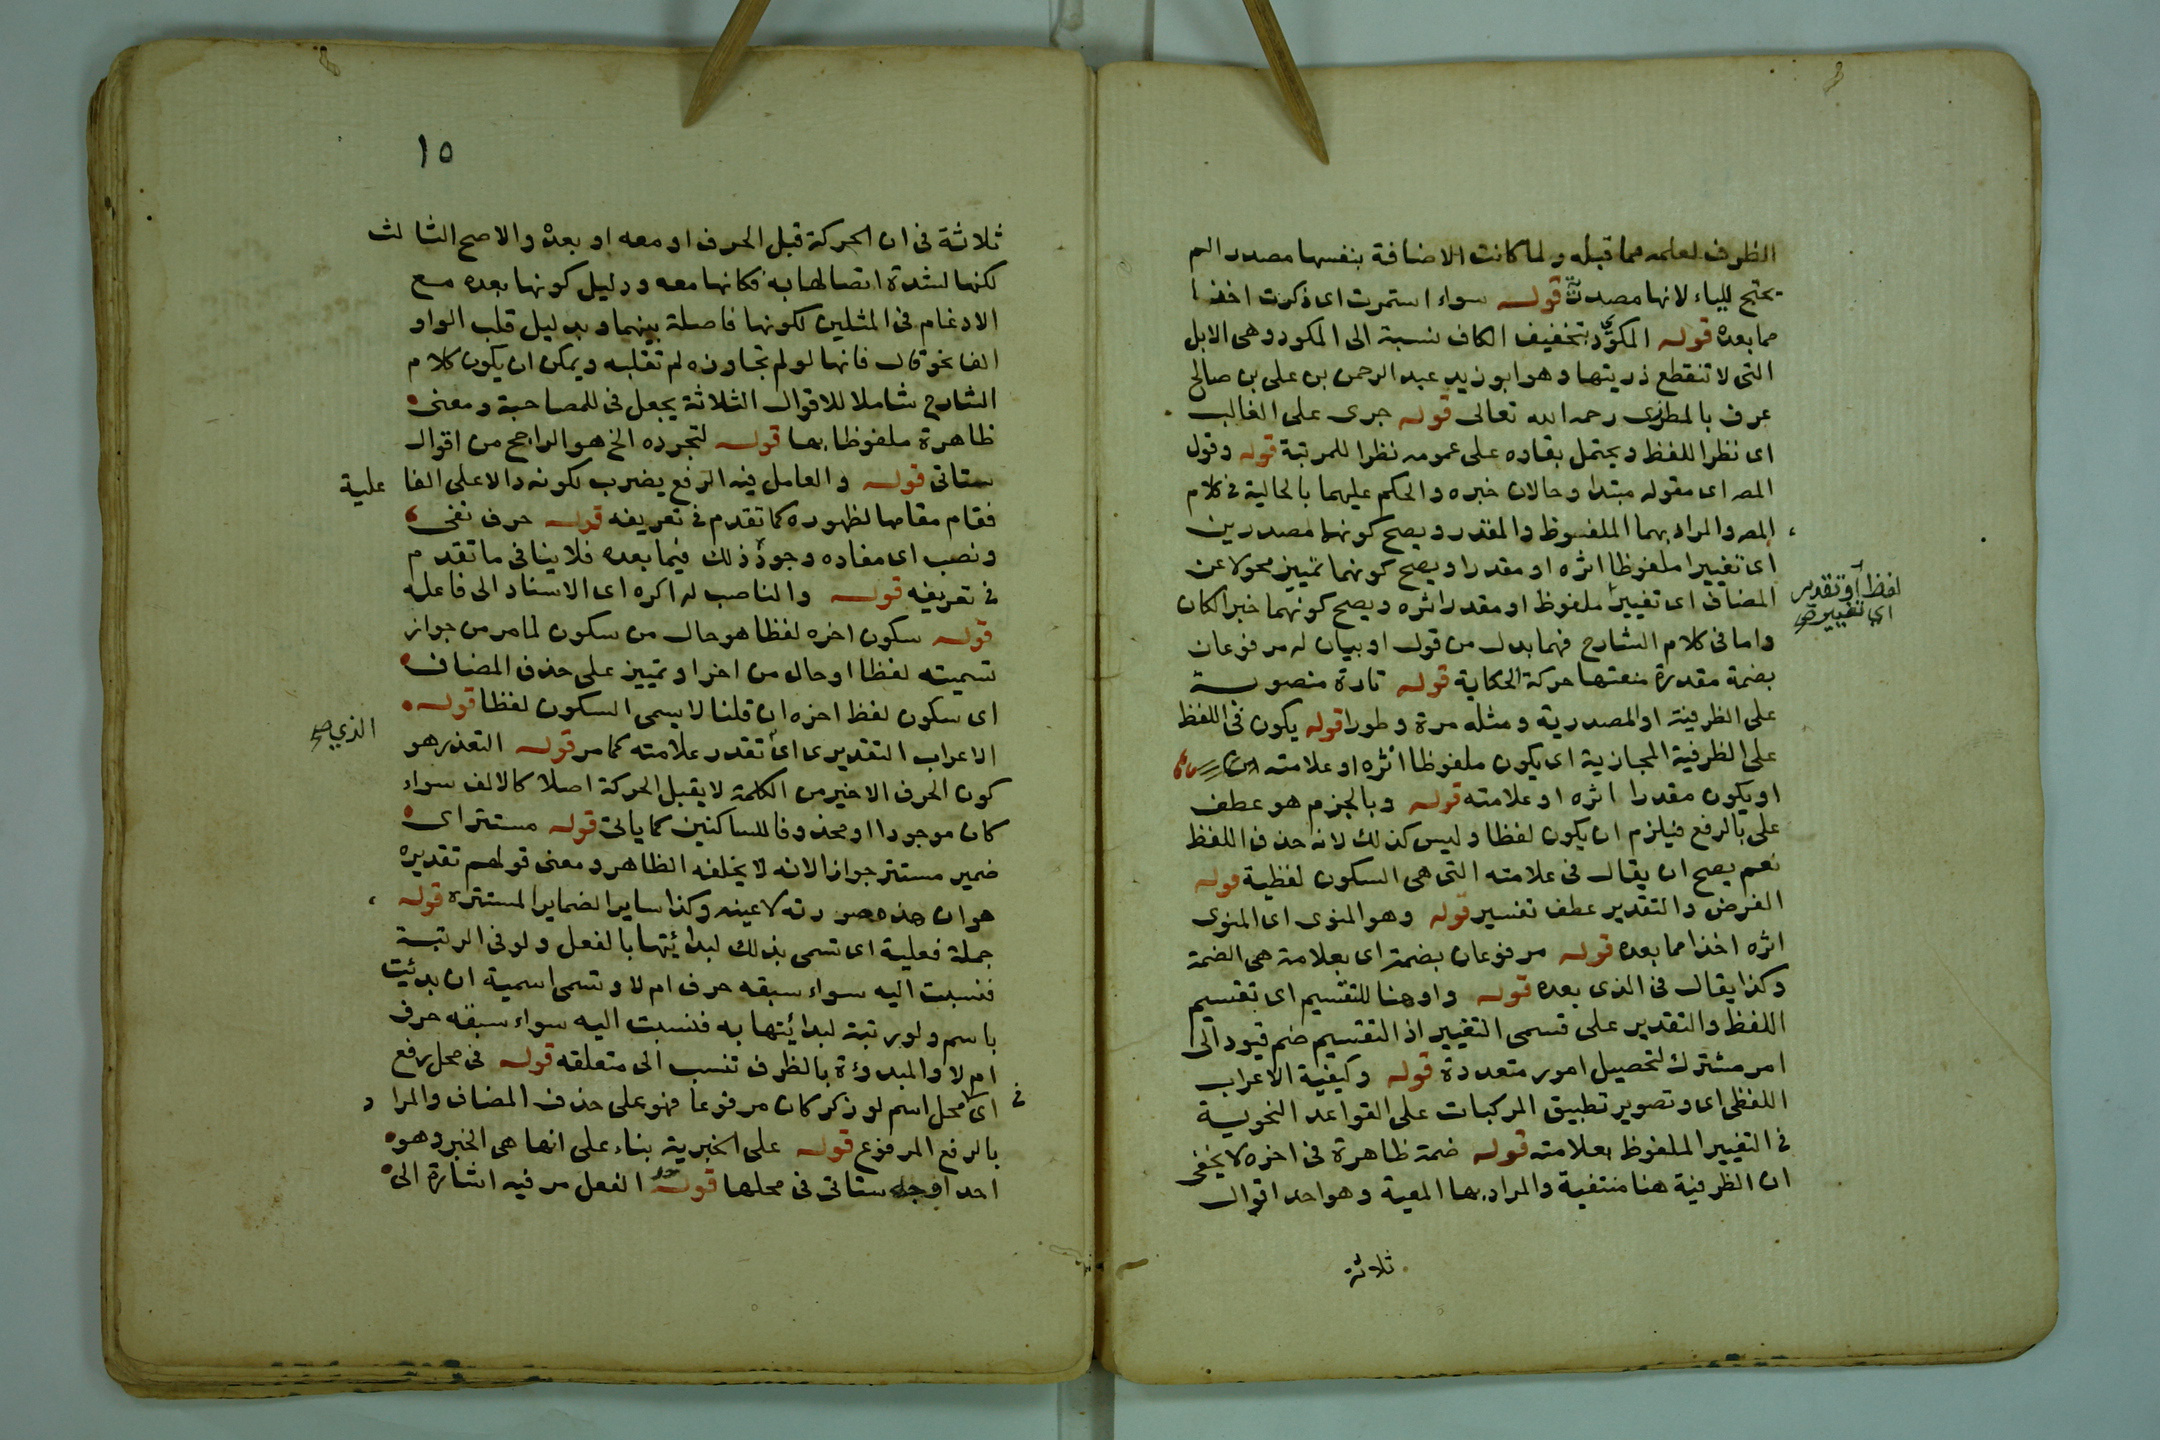 الظرف لعلمه مما قبله ولما كانت الاضافة بنفسها مصدر الم
يحتج للياء لانها مصدرية قوله سواء استمرت اى ذكرت اخذا
مما بعده قوله المكودى بتخفيف الكاف نسبة الى المكود وهى الابل
التى لا تنقطع ذريتها وهو ابو زيد عبد الرحمن بن على بن صالح
عرف بالمطرزى رحمه الله تعالى قوله جرى على الغالب
اى نظرا للفظ ويحتمل بقاده على عمومه نظرا للمرتبة قوله وقول
المصـ اى مقوله مبتدا وحالان خبره والحكم عليهما بالحالية فى كلام
المصـ والمراد بهما الملفوظ والمقدر ويصح كونهما مصدرين
اى تغييرا ملفوظا اثره او مقدرا ويصح كونهما تمييز محولا عن
المضاف اى تغيير ملفوظ او مقدر اثره ويصح كونهما خبرا لكان
لفظ او تقدير
اى تغيير صح
واما فى كلام الشارح فهما بدل من قول او بيان له مرفوعان
بضمة مقدرة منعتها حركة الحكاية قوله تارة منصوبة
على الظرفية او المصدرية ومثله مرة وطورا قوله يكون فى اللفظ
على الظرفية المجازية اى يكون ملفوظا اثره او علامته
او يكون مقدرا اثره او علامته قوله وبالجزم هو عطف
على بالرفع فيلزم ان يكون لفظا وليس كذلك لانه حذف اللفظ
نعم يصح ان يقال فى علامته التى هى السكون لفظية قوله
الفرض والتقدير عطف تفسير قوله وهو المنوى اى المنوى
اثره اخذا مما بعده قوله مرفوعان بضمة اى بعلامة هى الضمة
وكذا يقال فى الذى بعده قوله واو هنا للتقسيم اى تقسيم
اللفظ والتقدير على قسمى التغيير اذ التقسيم ضم قيود الى
امر مشترك لتحصيل امور متعددة قوله وكيفية الاعراب
اللفظى اى وتصوير تطبيق المركبات على القواعد النحوية
فى التغيير الملفوظ بعلامته قوله ضمة ظاهرة فى اخره لا يخفى
ان الظرفية هنا منتفية والمراد بها المعية وهو احد اقوال
ثلاثة
١٥
ثلاثة فى ان الحركة قبل الحرف او معه او بعده والاصح الثالث
لكنها لشدة اتصالها به فكانها معه ودليل كونها بعده مع
الادغام فى المثلين لكونها فاصلة بينهما وبدليل قلب الواو
الفا نحو قال فانها لو لم تجاوزه لم تقلبه ويمكن ان يكون كلام
الشارح شاملا للاقوال الثلاثة بجعل فى للمصاحبة ومعنى
ظاهرة ملفوظا بها قوله لتجرده الخ هو الراجح من اقوال
ستاتى قوله والعامل فيه الرفع يضرب لكونه دالا على الفا علية
فقام مقامها لظهوره كما تقدم فى تعريفه قوله حرف نفى
ونصب اى مفاده وجود ذلك فيما بعده فلا ينافى ما تقدم
فى تعريفه قوله والناصب له اكره اى الاسناد الى فاعله
قوله سكون اخره لفظا هو حال من سكون لما مر من جواز
تسميته لفظا او حال من اخر او تمييز على حذف المضاف
اى سكون لفظ اخره ان قلنا لا يسمى السكون لفظا قوله
الاعراب التقديرى اى تقدر علامته كما مر قوله التعذر هو
الذي صح
كون الحرف الاخير من الكلمة لا يقبل الحركة اصلا كالالف سواء
كان موجودا او محذوفا للساكنين كما ياتى قوله مستتر اى
ضمير مستتر جوازا لانه لا يخلفه الظاهر ومعنى قولهم تقديره
هو ان هذه صورته لا عينه وكذا ساير الضماير المستترة قوله
جملة فعلية اى تسمى بذلك لبدائيتها بالفعل ولو فى الرتبة
فنسبت اليه سواء سبقه حرف ام لا وتسمى اسمية ان بدئت
باسم ولو رتبة لبدائيتها به فنسبت اليه سواء سبقه حرف
ام لا والمبدوءة بالظرف تنسب الى متعلقه قوله فى محل رفع
اى فى محل اسم لو ذكر كان مرفوعا فهو على حذف المضاف والمراد
بالرفع المرفوع قوله على الخبرية بناء على انها هى الخبر وهو
احد اوجه ستاتى فى محلها قوله الفعل مر فيه اشارة الى